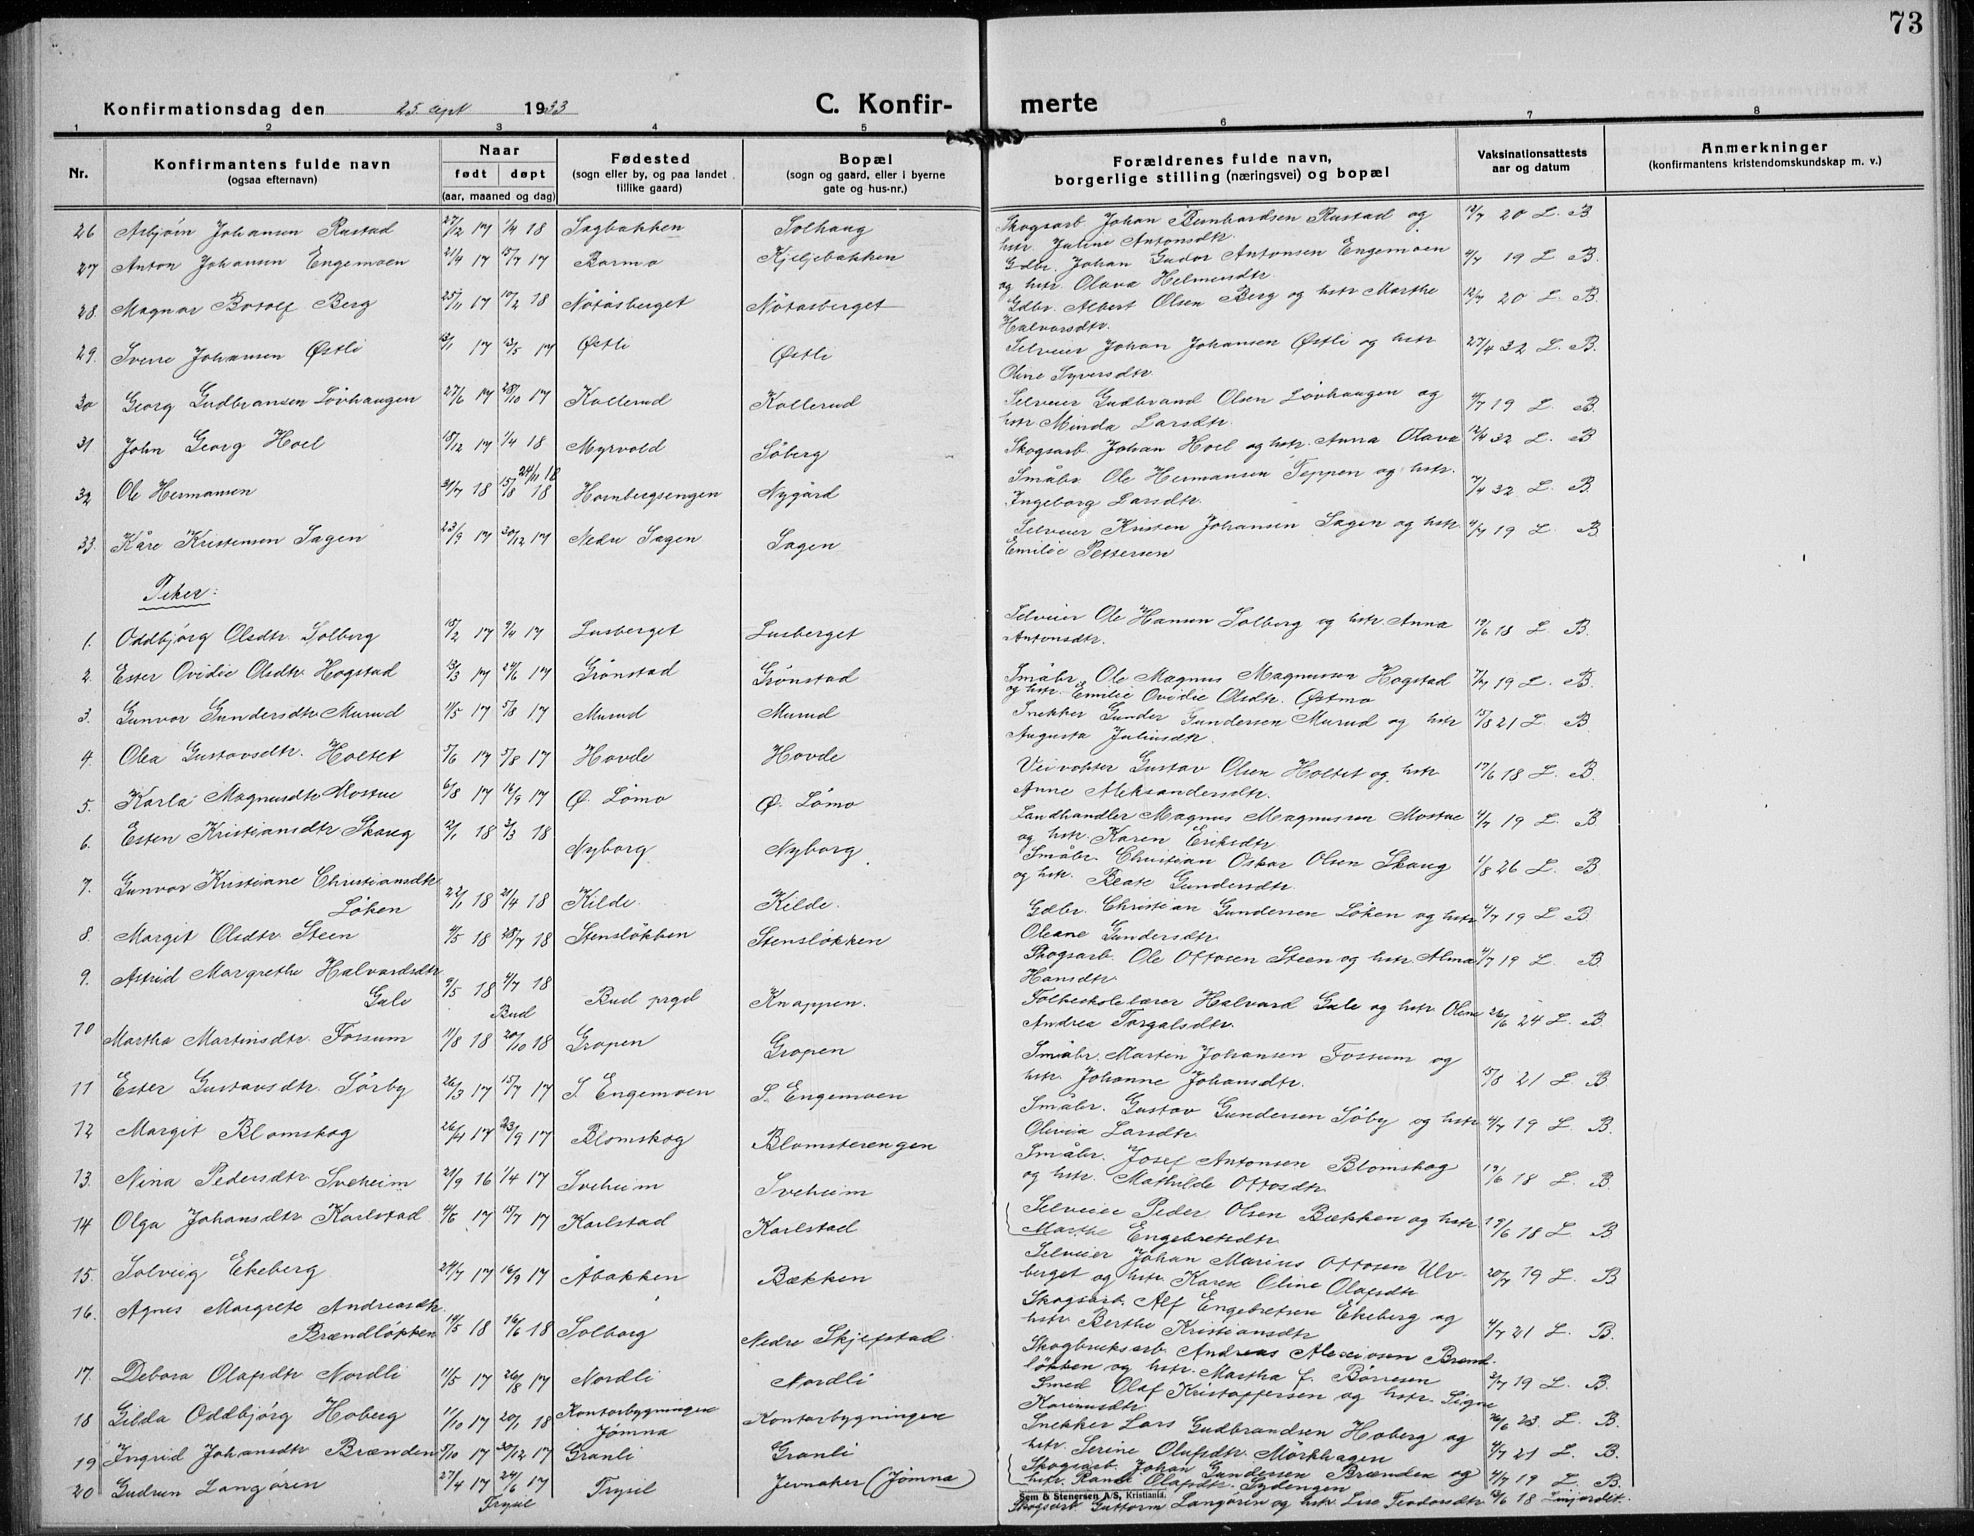 73
Konfirmationsdag den 25 sept 1933
C. Konfir- merte
1 2 3 4 5 6 7 8
Nr.
Konfirmantens fulde navn
(ogsaa efternavn)
Naar
født døpt
(aar, maaned og dag)
Fødested
(sogn eller by, og paa landet
tillike gaard)
Bopæl
(sogn og gaard, eller i byerne
gate og hus-nr.)
Forældrenes fulde navn,
borgerlige stilling (næringsvei) og bopæl
Vaksinationsattests
aar og datum
Anmerkninger
(konfirmantens kristendomskundskap m. v.)
26 Asbjörn Johansen Rustad 27/12 17 1/4 18 Sagbakken Solhaug Skogsarb Johan Bernhardsen Rustad og 12/7 20 L. B
hstr. Juline Antonsdtr.
27 Anton Johansen Engemoen 21/4 17 15/7 17 Barmo Kjeljebakken Gdbr. Johan Gudor Antonsen Engemoen 4/7 19 L B.
og hstr. Olava Helmersdtr.
28. Magnar Botolf Berg 25/11 17 10/2 18 Nötåsberget Nötåsberget Gdbr. Albert Olsen Berg og hstr Marthe 12/7 20 L. B.
Halvorsdtr.
29. Sverre Johansen Østli 13/1 17 13/5 17 Østli Østli Selveier Johan Johansen Østli og hstr 27/4 32 L. B.
Oline Syversdtr.
30 Georg Gudbransen Lövhaugen 27/6 17 28/10 17 Kollerud Kollerud Selveier Gudbrand Olsen Lövhaugen og 4/7 19 L. B.
hstr Minda Larsdtr.
31 John Georg Hoel 18/12 17 1/4 18 Myrvold Söberg Skogsarb. Johan Hoel og hstr. Anna Olava 12/4 32 L. B
32 Ole Hermansen 31/7 18 15/8 18 24/11 18 Hornbergsengen Nygård Småbr. Ole Hermansen Teppen og hstr. 7/4 32 L. B.
Ingeborg Larsdtr.
33. Kåre Kristensen Sagen 23/9 17 30/12 17 Nedre Sagen Sagen Selveier Kristen Johansen Sagen og hstr. 4/7 19 L. B
Emilie Pettersen
Piker:
1. Oddbjörg Olsdtr. Solberg 15/2 17 9/4 17 Lusberget Lusberget Selveier Ole Hansen Solberg og hstr. Anna 19/6 18 L. B.
Antonsdtr.
2. Ester Ovidie Olsdtr. Hogstad 13/3 17 24/6 17 Grönstad Grönstad Småbr. Ole Magnus Magnussen Hogstad 7/7 19 L. B.
og hstr. Emilie Ovidie Olsdtr. Østmo
3. Gunvor Gundersdtr Murud 11/5 17 5/8 17 Murud Murud Snekker Gunder Gundersen Murud og hstr 15/8 21 L. B
Augusta Juliusdtr.
4. Olea Gustavsdtr. Holtet 5/6 17 5/8 17 Hovde Hovde Veivokter Gustav Olsen Holtet og hstr 17/6 18 L. B.
Anne Aleksandersdtr.
5. Karla Magnusdtr Mostue 6/8 17 16/9 17 Ø. Lömo Ø. Lömo Landhandler Magnus Magnussen Mostue 4/7 19 L. B
og hstr. Karen Eriksdtr
6. Esten Kristiansdtr Skaug 12/1 18 3/3 18 Nyborg Nyborg Småbr. Christian Oskar Olsen Skaug 1/8 26 L. B
og hstr. Beate Gundersdtr.
7. Gunvor Kristiane Christiansdtr
Löken 22/1 18 21/4 18 Kilde. Kilde. Gdbr. Christian Gundersen Löken og hstr 4/7 19 L B
Oleane Gundersdtr
8. Margit Olsdtr. Steen 4/5 18 28/7 18 Stenslökken Stenslökken Skogsarb. Ole Ottosen Steen og hstr. Alma 4/7 19 L. B.
Hansdtr.
9. Astrid Margrethe Halvardsdtr
Gule 9/5 18 4/7 18 Bud Bud prgd Knappen. Folkeskolelærer Halvard Gule og hstr. Oline 26/6 24 L. B.
Andrea Torgalsdtr.
10 Martha Martinsdtr. Fossum 11/8 18 20/10 18 Gropen Gropen Småbr. Martin Johansen Fossum og
hstr. Johanne Johansdtr. 15/8 21 L. B
11 Ester Gustavsdtr. Sörby 26/3 17 15/7 17 S. Engemoen S. Engemoen Småbr. Gustav Gundersen Söby og hstr 4/7 19 L. B.
Olivia Larsdtr.
12 Margit Blomskog 26/4 17 23/9 17 Blomskog Blomsterengen Småbr. Josef Antonsen Blomskog 19/6 18 L. B.
og hstr. Mathilde Ottosdtr.
13. Nina Pedersdtr Sveheim 21/9 16 1/4 17 Sveheim Sveheim Selveier Peder Olsen Bækken og hstr 19/6 18 L B
Marthe Engebretsdtr.
14 Olga Johansdtr Karlstad 4/6 17 15/7 17 Karlstad Karlstad Selveier Johan Marius Ottosen Ulv-
berget og hstr. Karen Oline Olafsdtr 20/7 19 L. B
15. Solveig Ekeberg 24/7 17 16/9 17 Åbakken Bækken Skogsarb. Alf Engebretsen Ekeberg og
hstr Berthe Kristiansdtr 4/7 21 L. B.
16. Agnes Margrete Andreasdtr.
Brændlökken 14/5 18 16/6 18 Solborg Nedre Skjefstad Skogbruksarb. Andreas Alexiosen Brænd-
lökken og hstr. Martha f. Börresen 2/7 19 L. B.
17. Debora Olafsdtr Nordli 11/5 17 26/8 17 Nordli Nordli Smed Olaf Kristoffersen og hstr. Signe
Karenusdtr. 26/6 23 L. B.
18 Gilda Oddbjörg Hoberg 11/10 17 20/1 18 Kontorbygningen
Jömna Kontorbygningen Snekker Lars Gudbrandsen Hoberg og
hstr. Serine Olufsdtr. Mörkhagen 4/7 21 L. B.
19 Ingrid Johansdtr Brænden 5/10 17 30/12 17 Granli Granli Skogsarb. Johan Gundersen Brænden og
hstr. Randi Olafsdtr. Sydengen 4/7 19 L B.
20 Gudrun Langören 27/4 17 24/6 17 Trysil Trysil Jernaker (Jömna) Skogsarb. Guttorm Langören og hstr. Lise Teodorsdtr 13/6 18
Sem & Stenersen A/S, Kristiania.